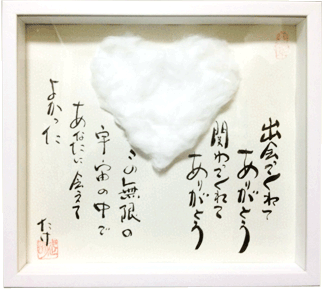 出会てくれて
ありがとう
関わてくれて
ありがとう
この無限の
宇宙の中で
あなたに会えて
よかった
たけ